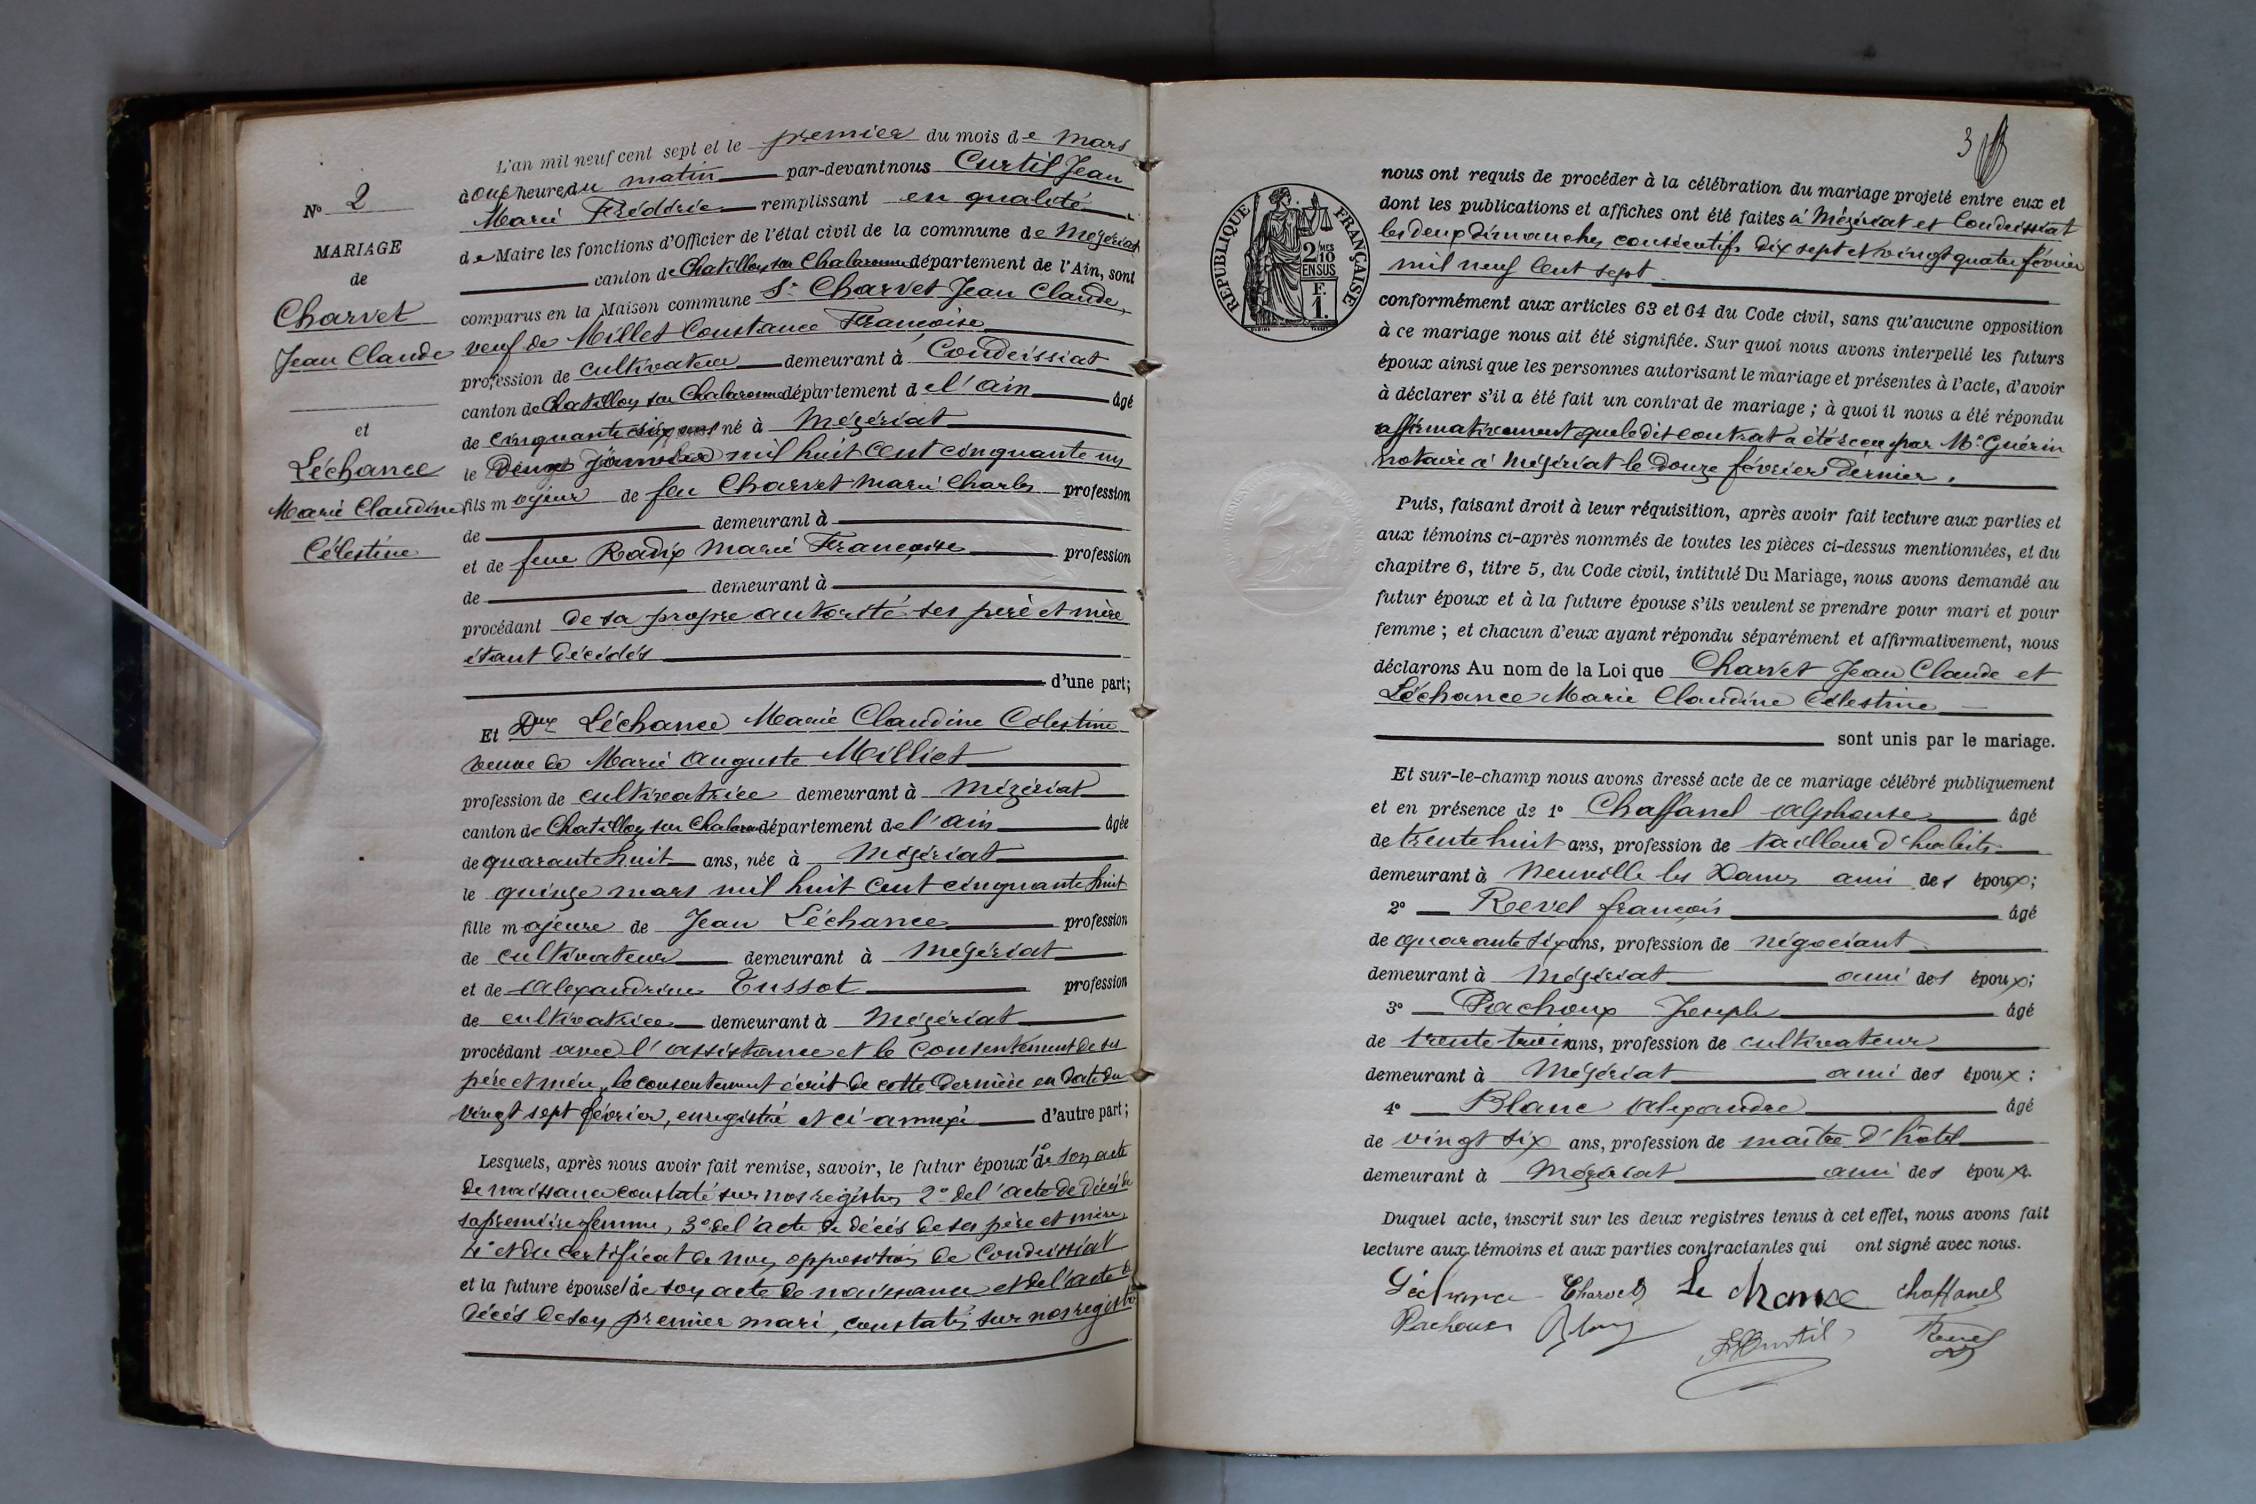 L'an mil neuf cent sept et le premier du mois de mars
à onze heures du matin par-devant nous Curtil Jean
Marie Frédéric remplissant en qualité
de Maire les fonctions d'Officier de l'état civil de la commune de Mézériat
canton de Chatillon sur Chalaronne département de l'Ain, sont
comparus en la Maison commune Sr Charvet Jean Claude,
veuf de Millet Constance Françoise
profession de cultivateur demeurant à Condeissiat
canton de Chatillon sur Chalaronne département de l'ain âgé
de cinquante six ans né à Mézériat
le deux janvier mil huit cent cinquante un
fils majeur de feu Charvet Marie Charles profession
de demeurant à
et de feue Radix Marie Françoise profession
de demeurant à
procédant de sa propre autorité ses père et mère
étant décédés
d'une part;
Et Dme Léchance Marie Claudine Célestine
veuve de Marie Auguste Milliet
profession de cultivatrice demeurant à Mézériat
canton de Chatillon sur Chalaronne département de l'ain âgée
de quarante huit ans, née à Mézériat
le quinze mars mil huit cent cinquante huit
fille majeure de Jean Léchance profession
de cultivateur demeurant à Mézériat
et de Alexandrine Tussot profession
de cultivatrice demeurant à Mézériat
procédant avec l'assistance et le consentement de ses
père et mère, le consentement écrit de cette dernière en date du
vingt sept février, enregistré et ci-annexé d'autre part;
Lesquels, après nous avoir fait remise, savoir, le futur époux 1° de son acte
de naissance constaté sur nos registres 2° de l'acte de décès de
sa première femme, 3° de l'acte de décès de ses père et mère,
4° et du certificat de non opposition de Condeissiat
et la future épouse 1° de son acte de naissance et de l'acte de
décès de son premier mari, constatés sur nos registres
N° 2
MARIAGE
de
Charvet
Jean Claude
et
Léchance
Marie Claudine
Célestine
3
RÉPUBLIQUE FRANÇAISE
2/10 MES
EN SUS
F.
1.
nous ont requis de procéder à la célébration du mariage projeté entre eux et
dont les publications et affiches ont été faites à Mézériat et Condeissiat
les deux dimanches consécutifs dix sept et vingt quatre février
mil neuf cent sept
conformément aux articles 63 et 64 du Code civil, sans qu'aucune opposition
à ce mariage nous ait été signifiée. Sur quoi nous avons interpellé les futurs
époux ainsi que les personnes autorisant le mariage et présentes à l'acte, d'avoir
à déclarer s'il a été fait un contrat de mariage ; à quoi il nous a été répondu
affirmativement que le dit contrat a été reçu par Me Guérin
notaire à Mézériat le douze février dernier.
Puis, faisant droit à leur réquisition, après avoir fait lecture aux parties et
aux témoins ci-après nommés de toutes les pièces ci-dessus mentionnées, et du
chapitre 6, titre 5, du Code civil, intitulé Du Mariage, nous avons demandé au
futur époux et à la future épouse s'ils veulent se prendre pour mari et pour
femme ; et chacun d'eux ayant répondu séparément et affirmativement, nous
déclarons Au nom de la Loi que Charvet Jean Claude et
Léchance Marie Claudine Célestine
sont unis par le mariage.
Et sur-le-champ nous avons dressé acte de ce mariage célébré publiquement
et en présence de 1° Chaffanel Alphonse âgé
de trente huit ans, profession de tailleur d'habits
demeurant à Neuville les Dames ami des époux;
2° Revel françois âgé
de quarante six ans, profession de négociant
demeurant à Mézériat ami des époux;
3° Pachoux Joseph âgé
de trente trois ans, profession de cultivateur
demeurant à Mézériat ami des époux;
4° Blanc Alexandre âgé
de vingt six ans, profession de maître d'hôtel
demeurant à Mézériat ami des époux.
Duquel acte, inscrit sur les deux registres tenus à cet effet, nous avons fait
lecture aux témoins et aux parties contractantes qui ont signé avec nous.
Léchance Charvet Le chance Chaffanel
Pachoux Blanc F Curtil Revel